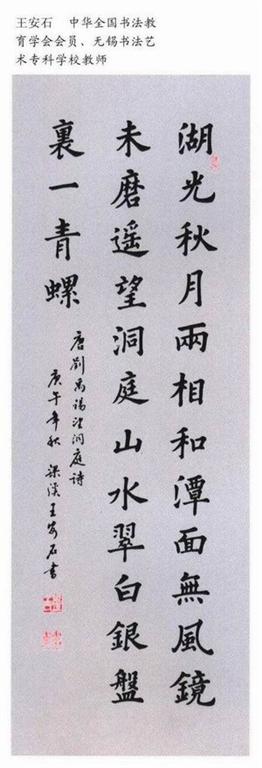 王安石　中华全国书法教
育学会会员、无锡书法艺
术专科学校教师
湖光秋月兩相和潭面無風鏡
未磨遥望洞庭山水翠白銀盤
裏一青螺
唐劉禹锡望洞庭诗
庚午年秋梁溪王安石書